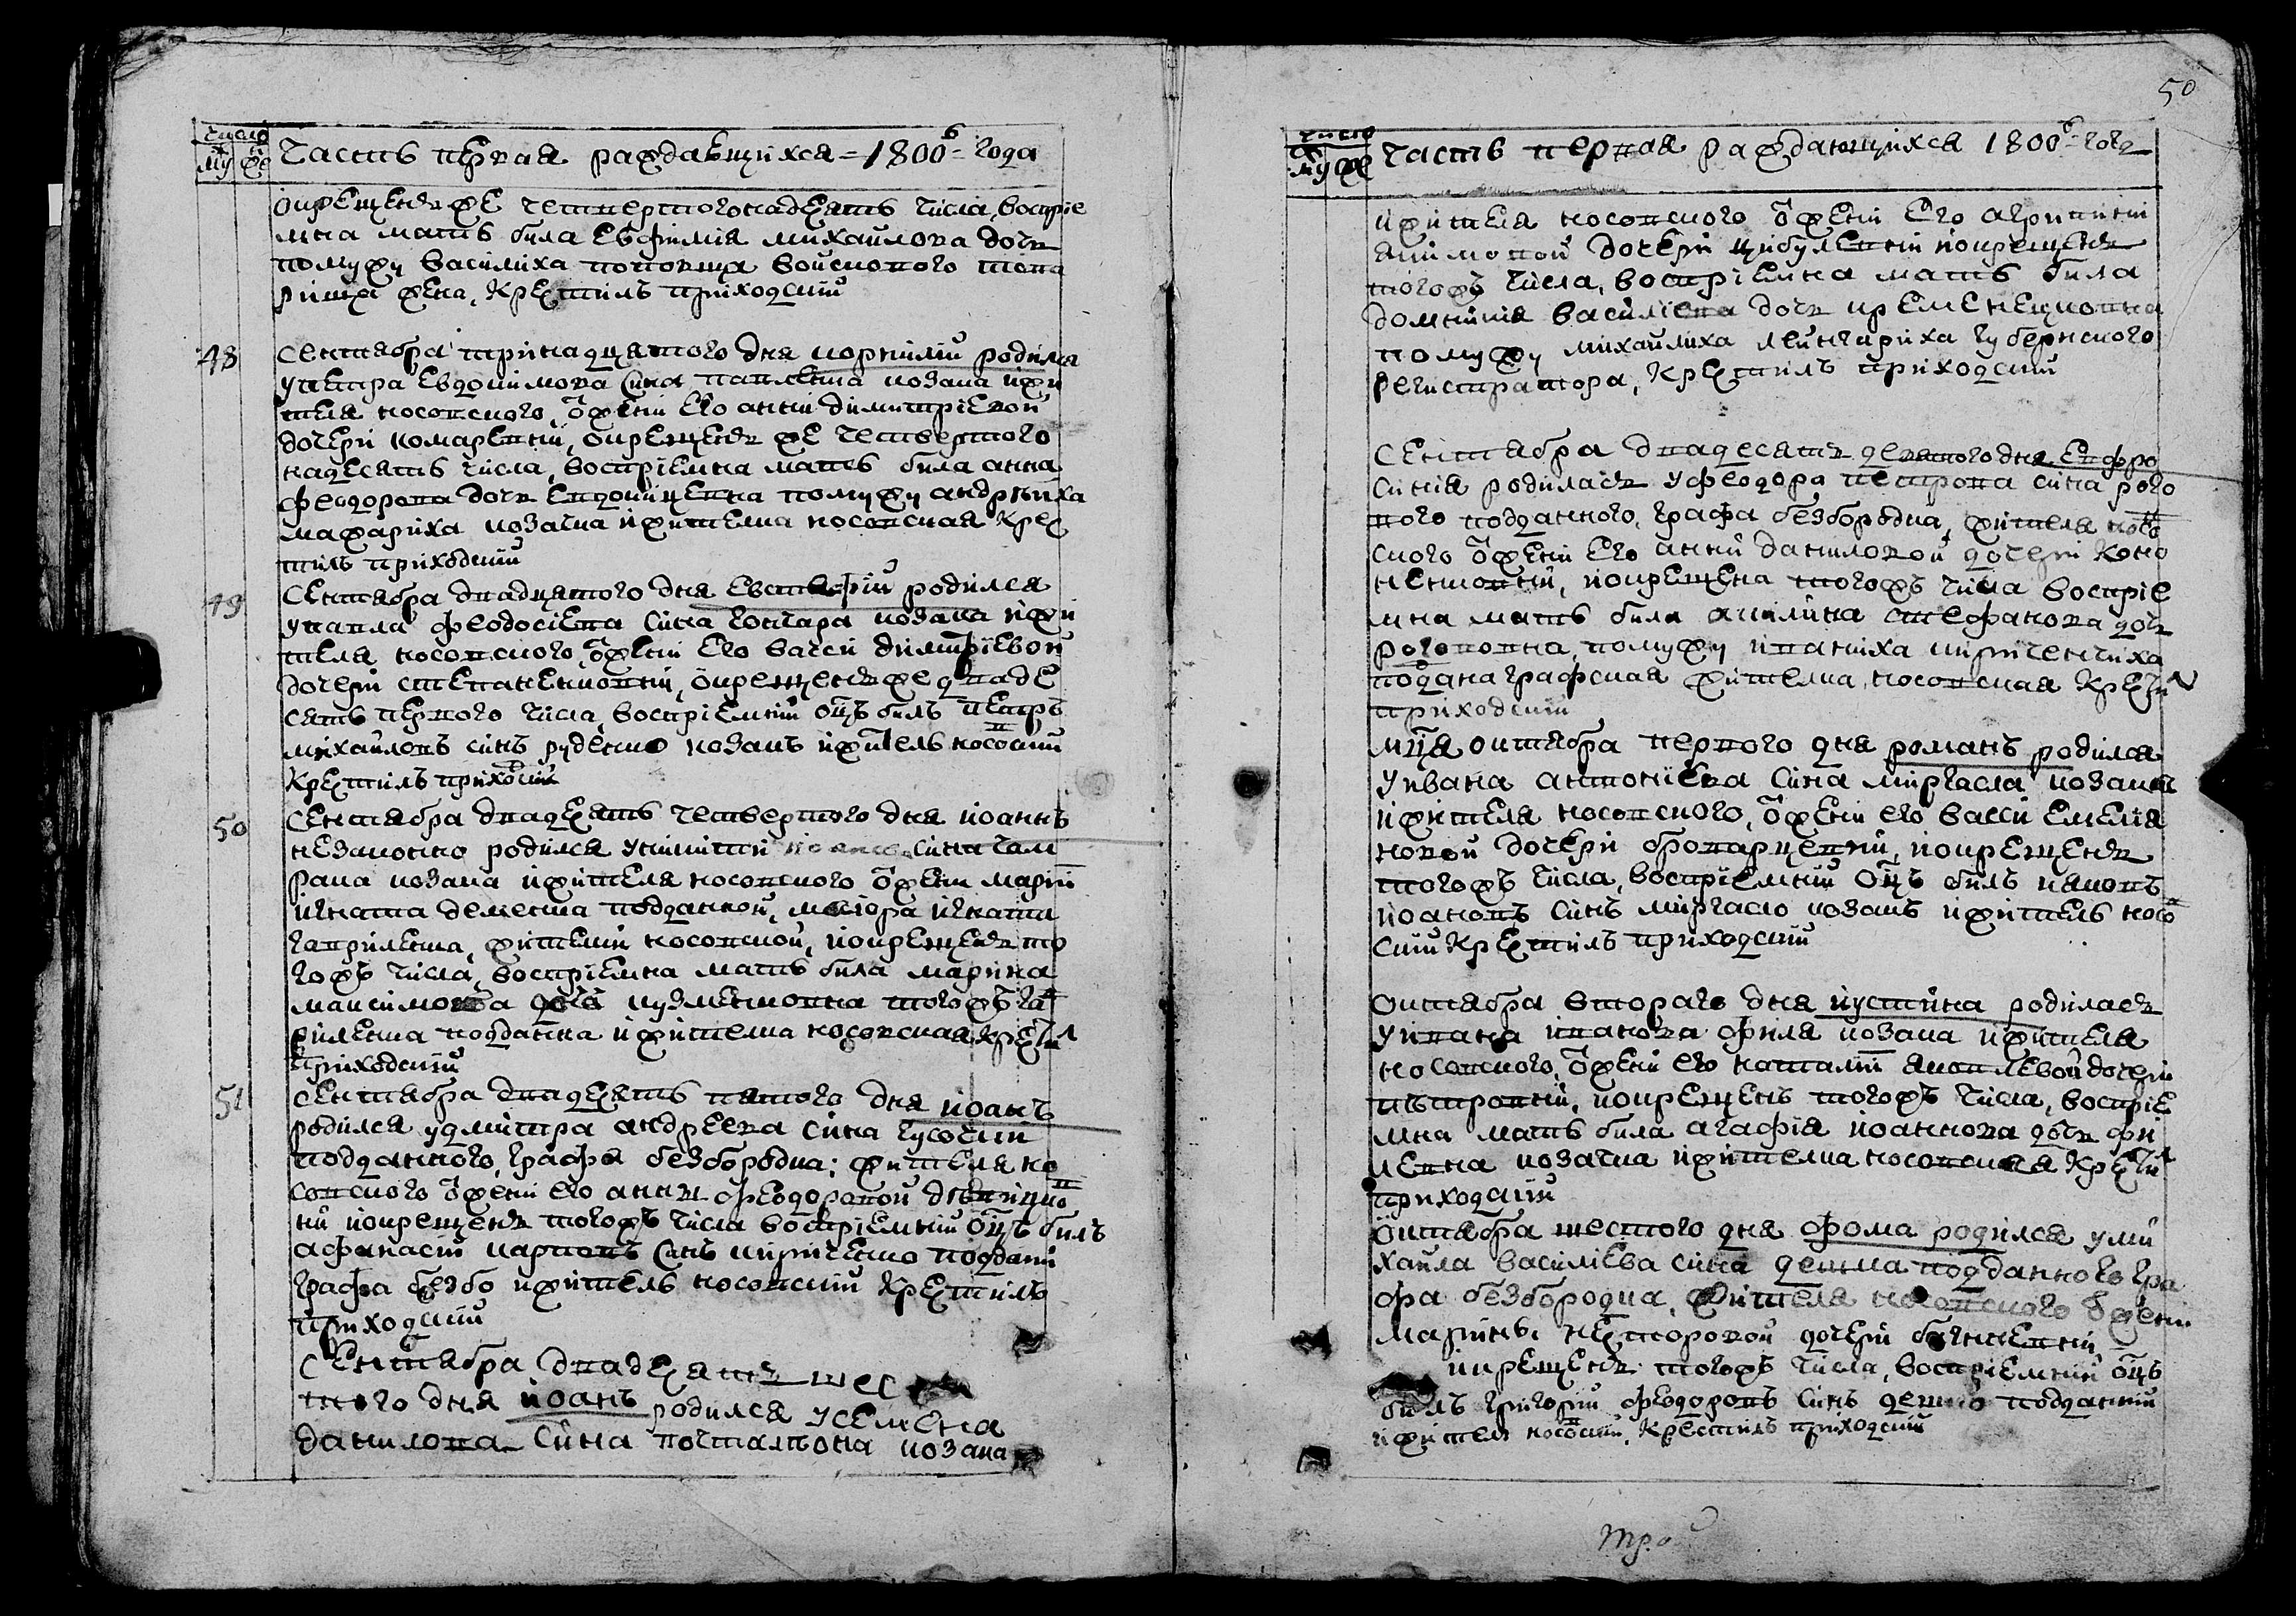 число
му же
Часть первая раждающихся = 1800в= года
окрещенъ же четвертогонадесять числа, воспріе
мна мать била Евфимія михайлова дочь
помужу василиха поповща войскового това
рища жена, Крестилъ приходскій
48
Сентября тринадцятого дня корнилій родился
упетра Евдокимова сина павленка козака ижи
теля носовского, ѿжени его анни димитріевой
дочери комаревни, окрещенъ же четвертого
надесять числа, воспріемна мать била анна
феодорова дочь Евдокиценка помужу андрѣиха
мажариха козачка ижителка носовская Крес
тилъ приходскій
49
Сентября двадцятого дня Евстафій родился
упавла феодосіева сина гончара козака ижи
теля носовского, ѿжени его васси димитріевой
дочери степаненковни, окрещенъ же дваде
сять первого числа, воспріемній оцъ билъ петръ
михайловъ синъ руденко козакъ ижитель носовскій
Крестилъ приходскій
50
Сентября двадесять четвертого дня иоаннъ
незаконно родился уникити сина
козака ижителя носовского ѿжени маріи
игната деменка подданной, маіора игната
гавриленка, жителки носовской, иокрещенъ то
гожъ числа, воспріемна мать била марина
максимова дочь кузменковна тогожъ гав
риленка подданна ижителка носовская Крестил
приходскій
51
Сентября двадесять пятого дня иоанъ
родился удмитра андреева сина гусочки
подданного, графа безбородка, жителя но
совского ѿжени его анни феодоровой
ни иокрещенъ тогожъ числа воспріемній оцъ билъ
афанасій карповъ синъ кириченко подданій
графа безбо ижитель носовскій Крестилъ
приходскій
Сентября двадесять шес
того дня иоанъ родился усемена
данилова сина почталіона козака
50
число
му же
Часть первая раждающихся 1800в= года
ижителя носовского ѿжени его агрипини
якимовой дочери цибулевни иокрещенъ
тогожъ числа, воспріемна мать била
домникія василіева дочь кременецковна
помужу михайлиха
регистратора, Крестилъ приходскій
Сентября двадесять девятого дня Евфро
синія родилась уфеодора петрова сина рого
вого подданного, графа безбородка, жителя носов
ского ѿжени его анни даниловой дочери коно
ненковни, иокрещена тогожъ числа воспріе
мна мать била акилина стефанова дочь
роговона, помужу иваниха кириченчиха
подана графская жителка носовская Крестил
приходскій
мця октября первого дня романъ родился
уивана антоніева сина миргасла козака
ижителя носовского, ѿжени его васси емелія
новой дочери боварцевни, иокрещенъ
тогожъ числа, воспріемній оцъ билъ яковъ
иоановъ синъ миргасло козакъ ижитель носов
скій Крестилъ приходскій
октября второго дня иустина родилась
уивана иванова филя козака ижителя
носовского, ѿжени его наталіи яковлевой дочери
пѣтровни, иокрещенъ тогожъ числа, воспріе
мна мать била агафія иоаннова дочь фи
левна козачка ижителка носовская Крестил
приходскій
октября шестого дня фома родился уми
хаила василіева сина подданного гра
фа безбородка, жителя носовского ѿжени
марини несторовой дочери
окрещенъ тогожъ числа, воспріемній оцъ
билъ григорій феодоровъ синъ подданній
ижител носовскій, Крестилъ приходскій